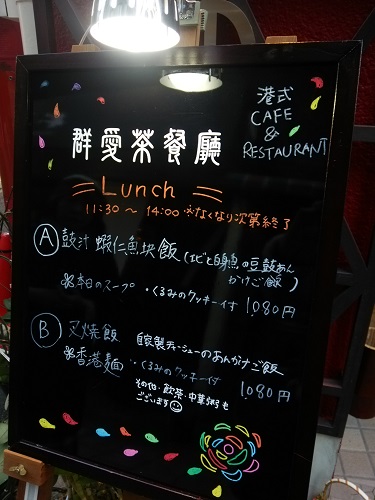 群愛茶餐廳
港式
CAFE
&
RESTAURANT
Lunch
11:30〜14:00 ※なくなり次第終了
Ⓐ 鼓汁 蝦仁魚块飯(エビと白身魚の豆鼓あんかけご飯)
※本日のスープ・くるみのクッキー付 1080円
Ⓑ 叉焼飯 自家製チャーシューのあんかけご飯
※香港麺・くるみのクッキー付 1080円
その他・飲茶・中華粥も
ございます